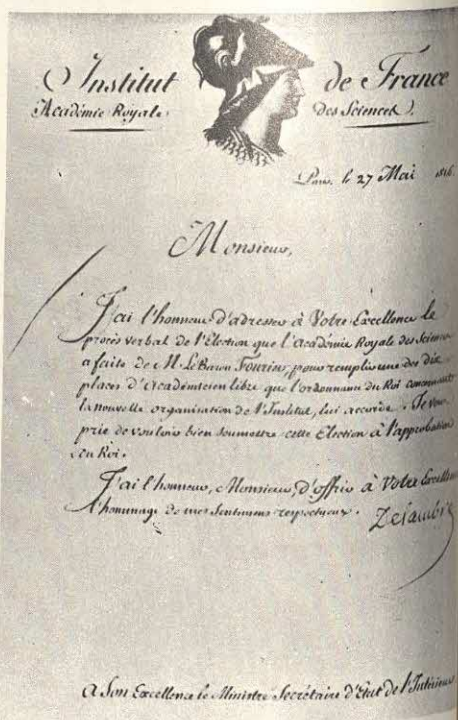 Institut de France
Académie Royale des Sciences.
Paris, le 27 Mai 1816.
Monsieur,
J'ai l'honneur d'adresser à Votre Excellence le
procès verbal de l'Élection que l'Académie Royale des Sciences
a faite de M. Le Baron Fourier, pour remplir une des dix
places d'Académicien libre que l'ordonnance du Roi concernant
la nouvelle organisation de l'Institut, lui accorde. Je vous
prie de vouloir bien soumettre cette Élection à l'approbation
du Roi.
J'ai l'honneur, Monsieur, d'offrir à Votre Excellence
l'hommage de mes Sentimens respectueux.
A Son Excellence le Ministre Secrétaire d'Etat de l'Intérieur